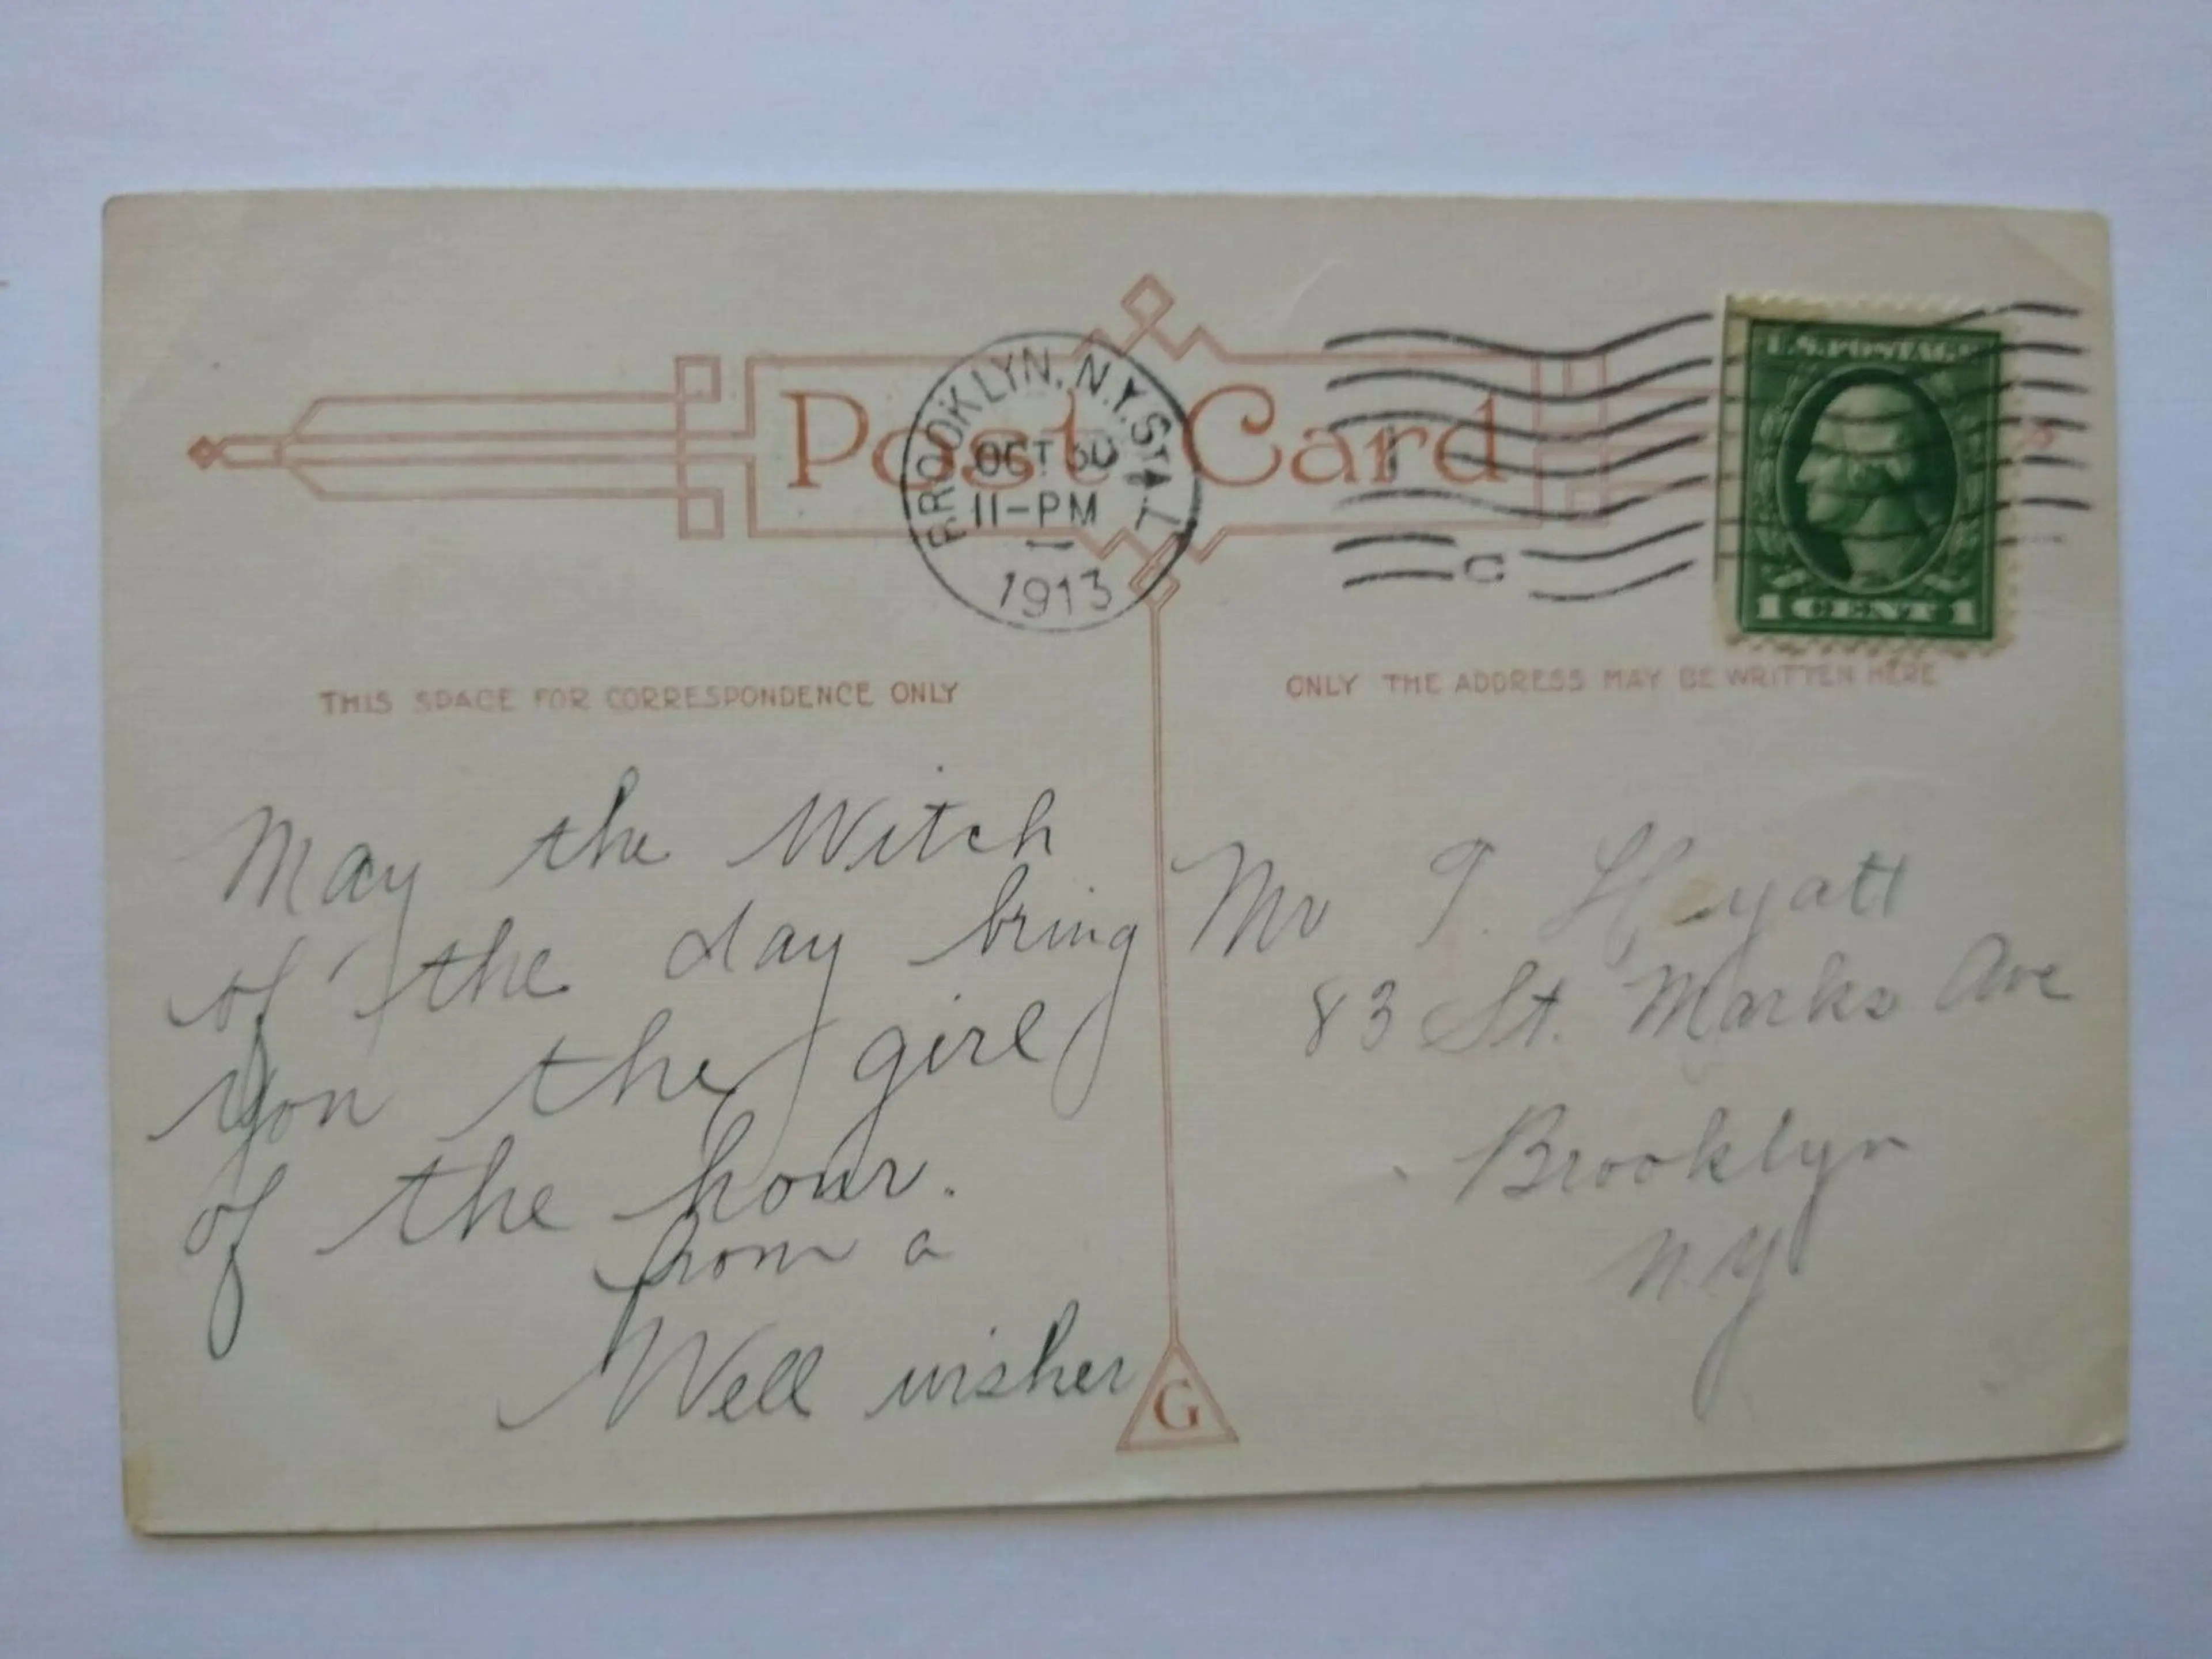 Post Card
BROOKLYN, N.Y. STA. L
OCT 30
11-PM
1913
C
U.S. POSTAGE
1 CENT 1
THIS SPACE FOR CORRESPONDENCE ONLY
ONLY THE ADDRESS MAY BE WRITTEN HERE
May the Witch
of the day bring
you the girl
of the hour.
from a
Well wisher
Mr T. Hyatt
83 St. Marks Ave
Brooklyn
N.Y
G